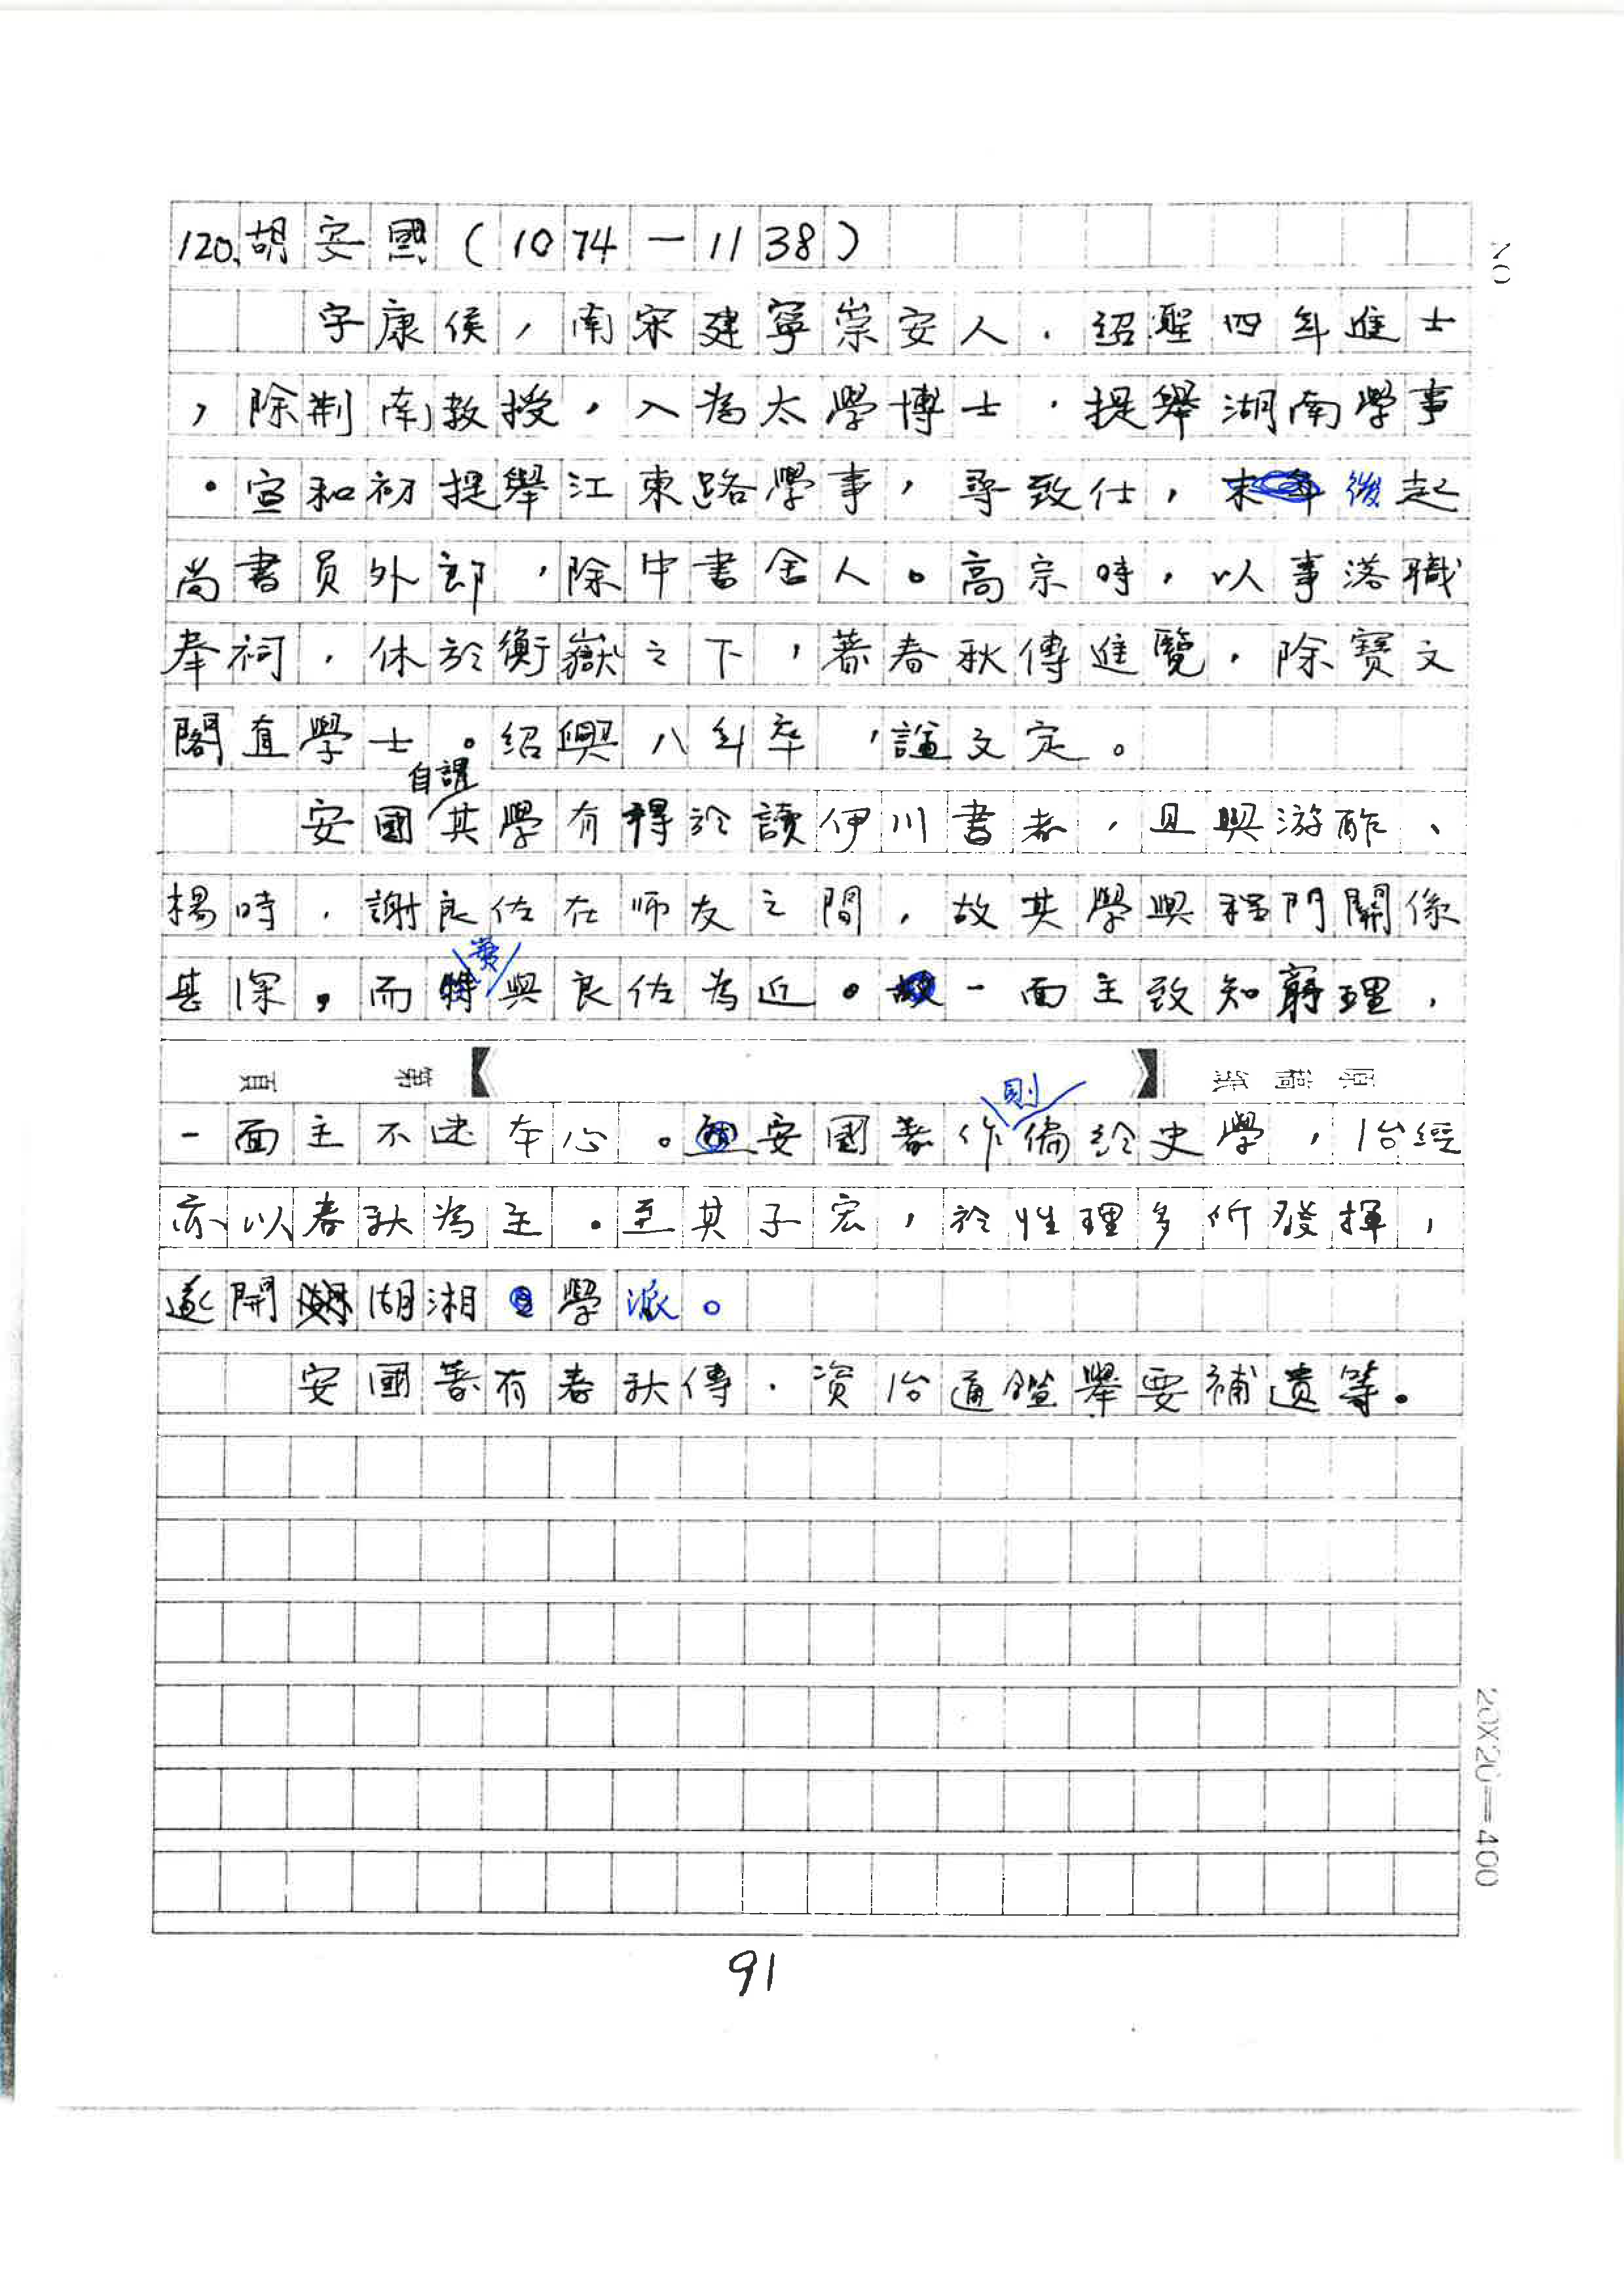 120.胡安國(1074一1138)
字康侯,南宋建寧崇安人.紹聖四年進士
,除荆南教授,入為太學博士,提舉湖南學事
。宣和初提舉江東路學事,尋致仕,末後起
尚書員外郎,除中書舍人。高宗時,以事落職
奉祠,休於衡嶽之下,著春秋傳進覽,除寶文
閣直學士。紹興八年卒,諡文定。
自謂
安國其學有得於讀伊川書者,且與游酢、
楊時,謝良佐在師友之間,故其學與程門關係
甚深,而實與良佐為近。一面主致知窮理,
第 頁
原稿紙
則
一面主不迷本心。安國著作偏於史學,治經
亦以春秋為主。至其子宏,於性理多所發揮,
遂開湖湘學派。
安國著有春秋傳.資治通鑑舉要補遺等。
20X20=400
91